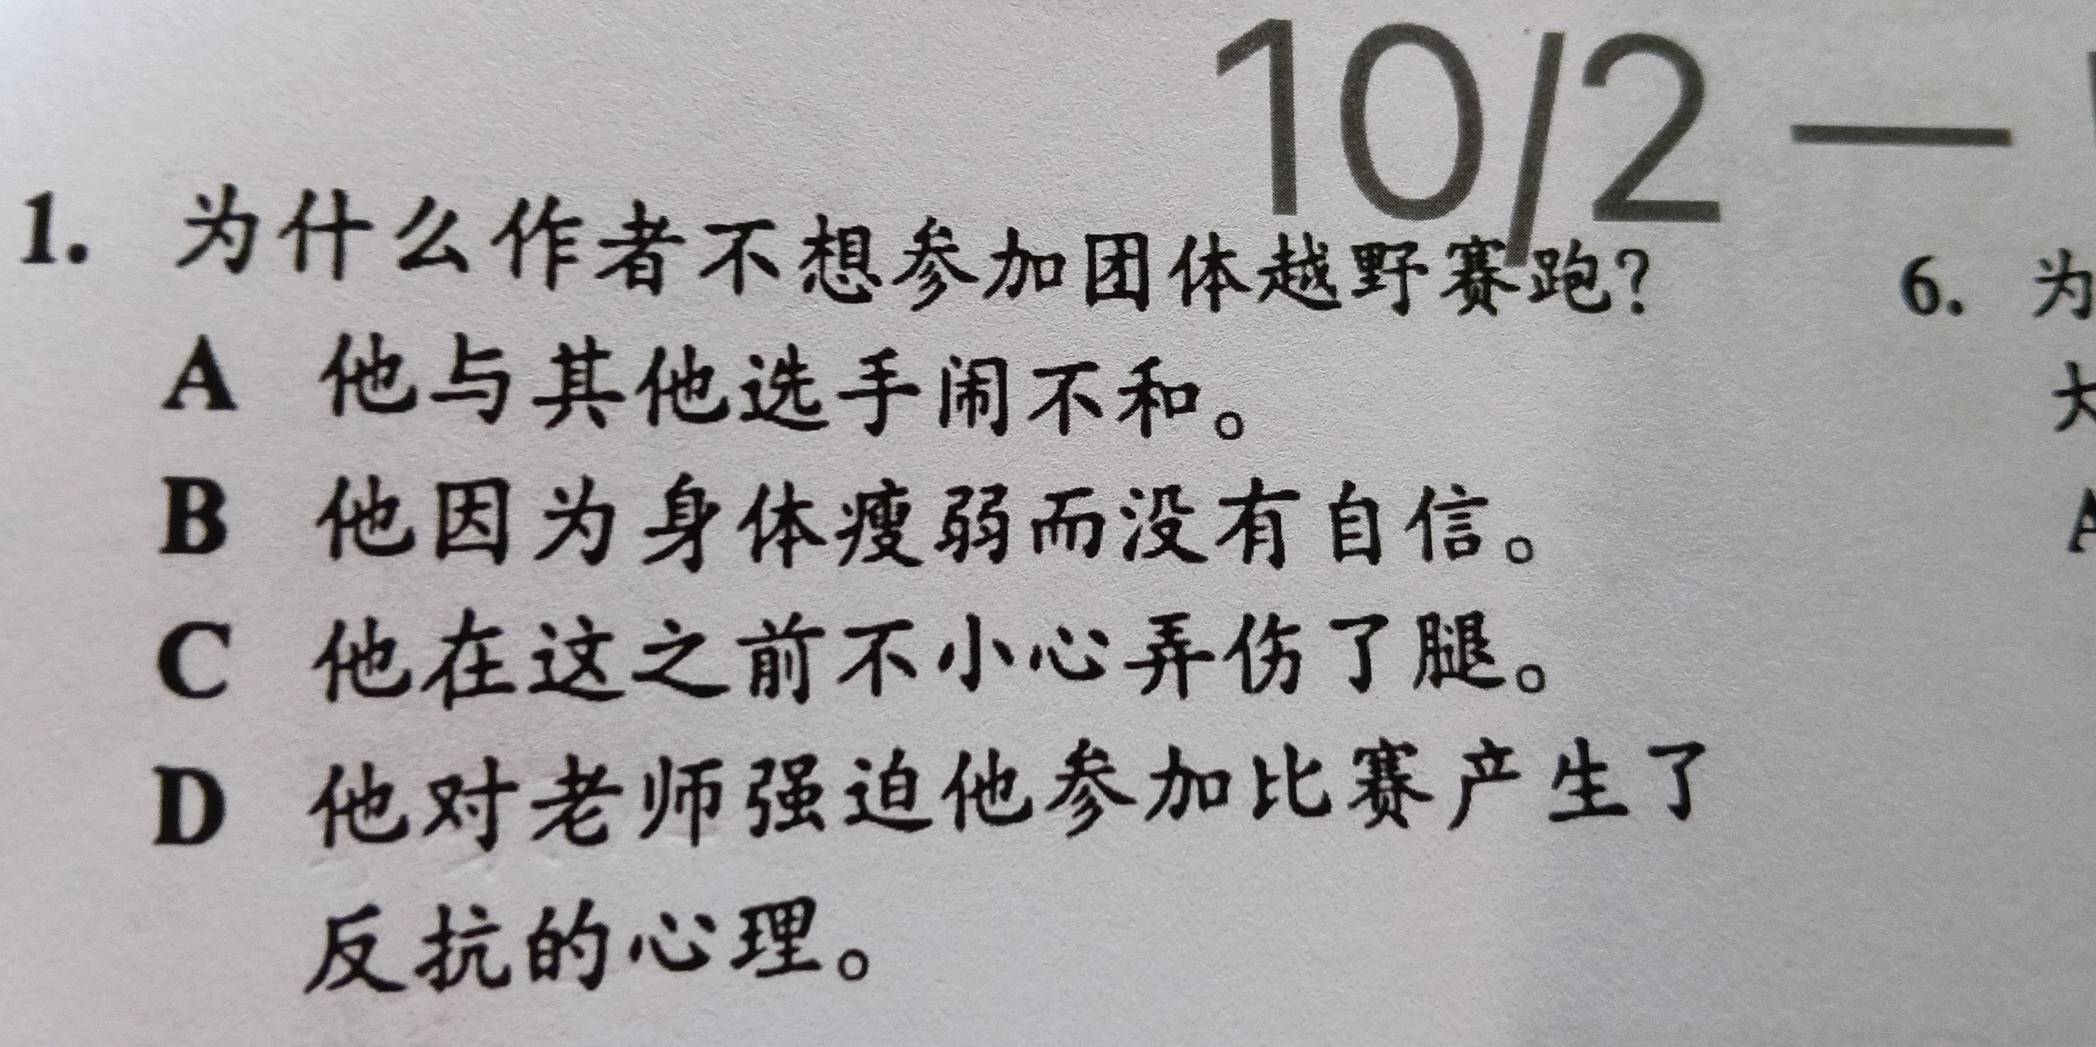 10/2 —
1. 为什么作者不想参加团体越野赛跑?
A 他与其他选手闹不和。
B 他因为身体瘦弱而没有自信。
C 他在这之前不小心弄伤了腿。
D 他对老师强迫他参加比赛产生了
反抗的心理。
6. 为
大
A